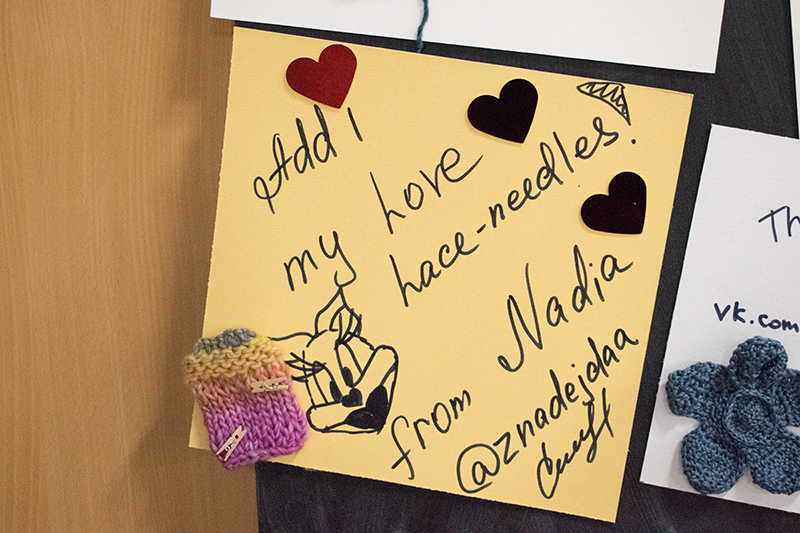 Addi
my Love
Lace-needles!
from Nadia
@znadejdaa
vk.com